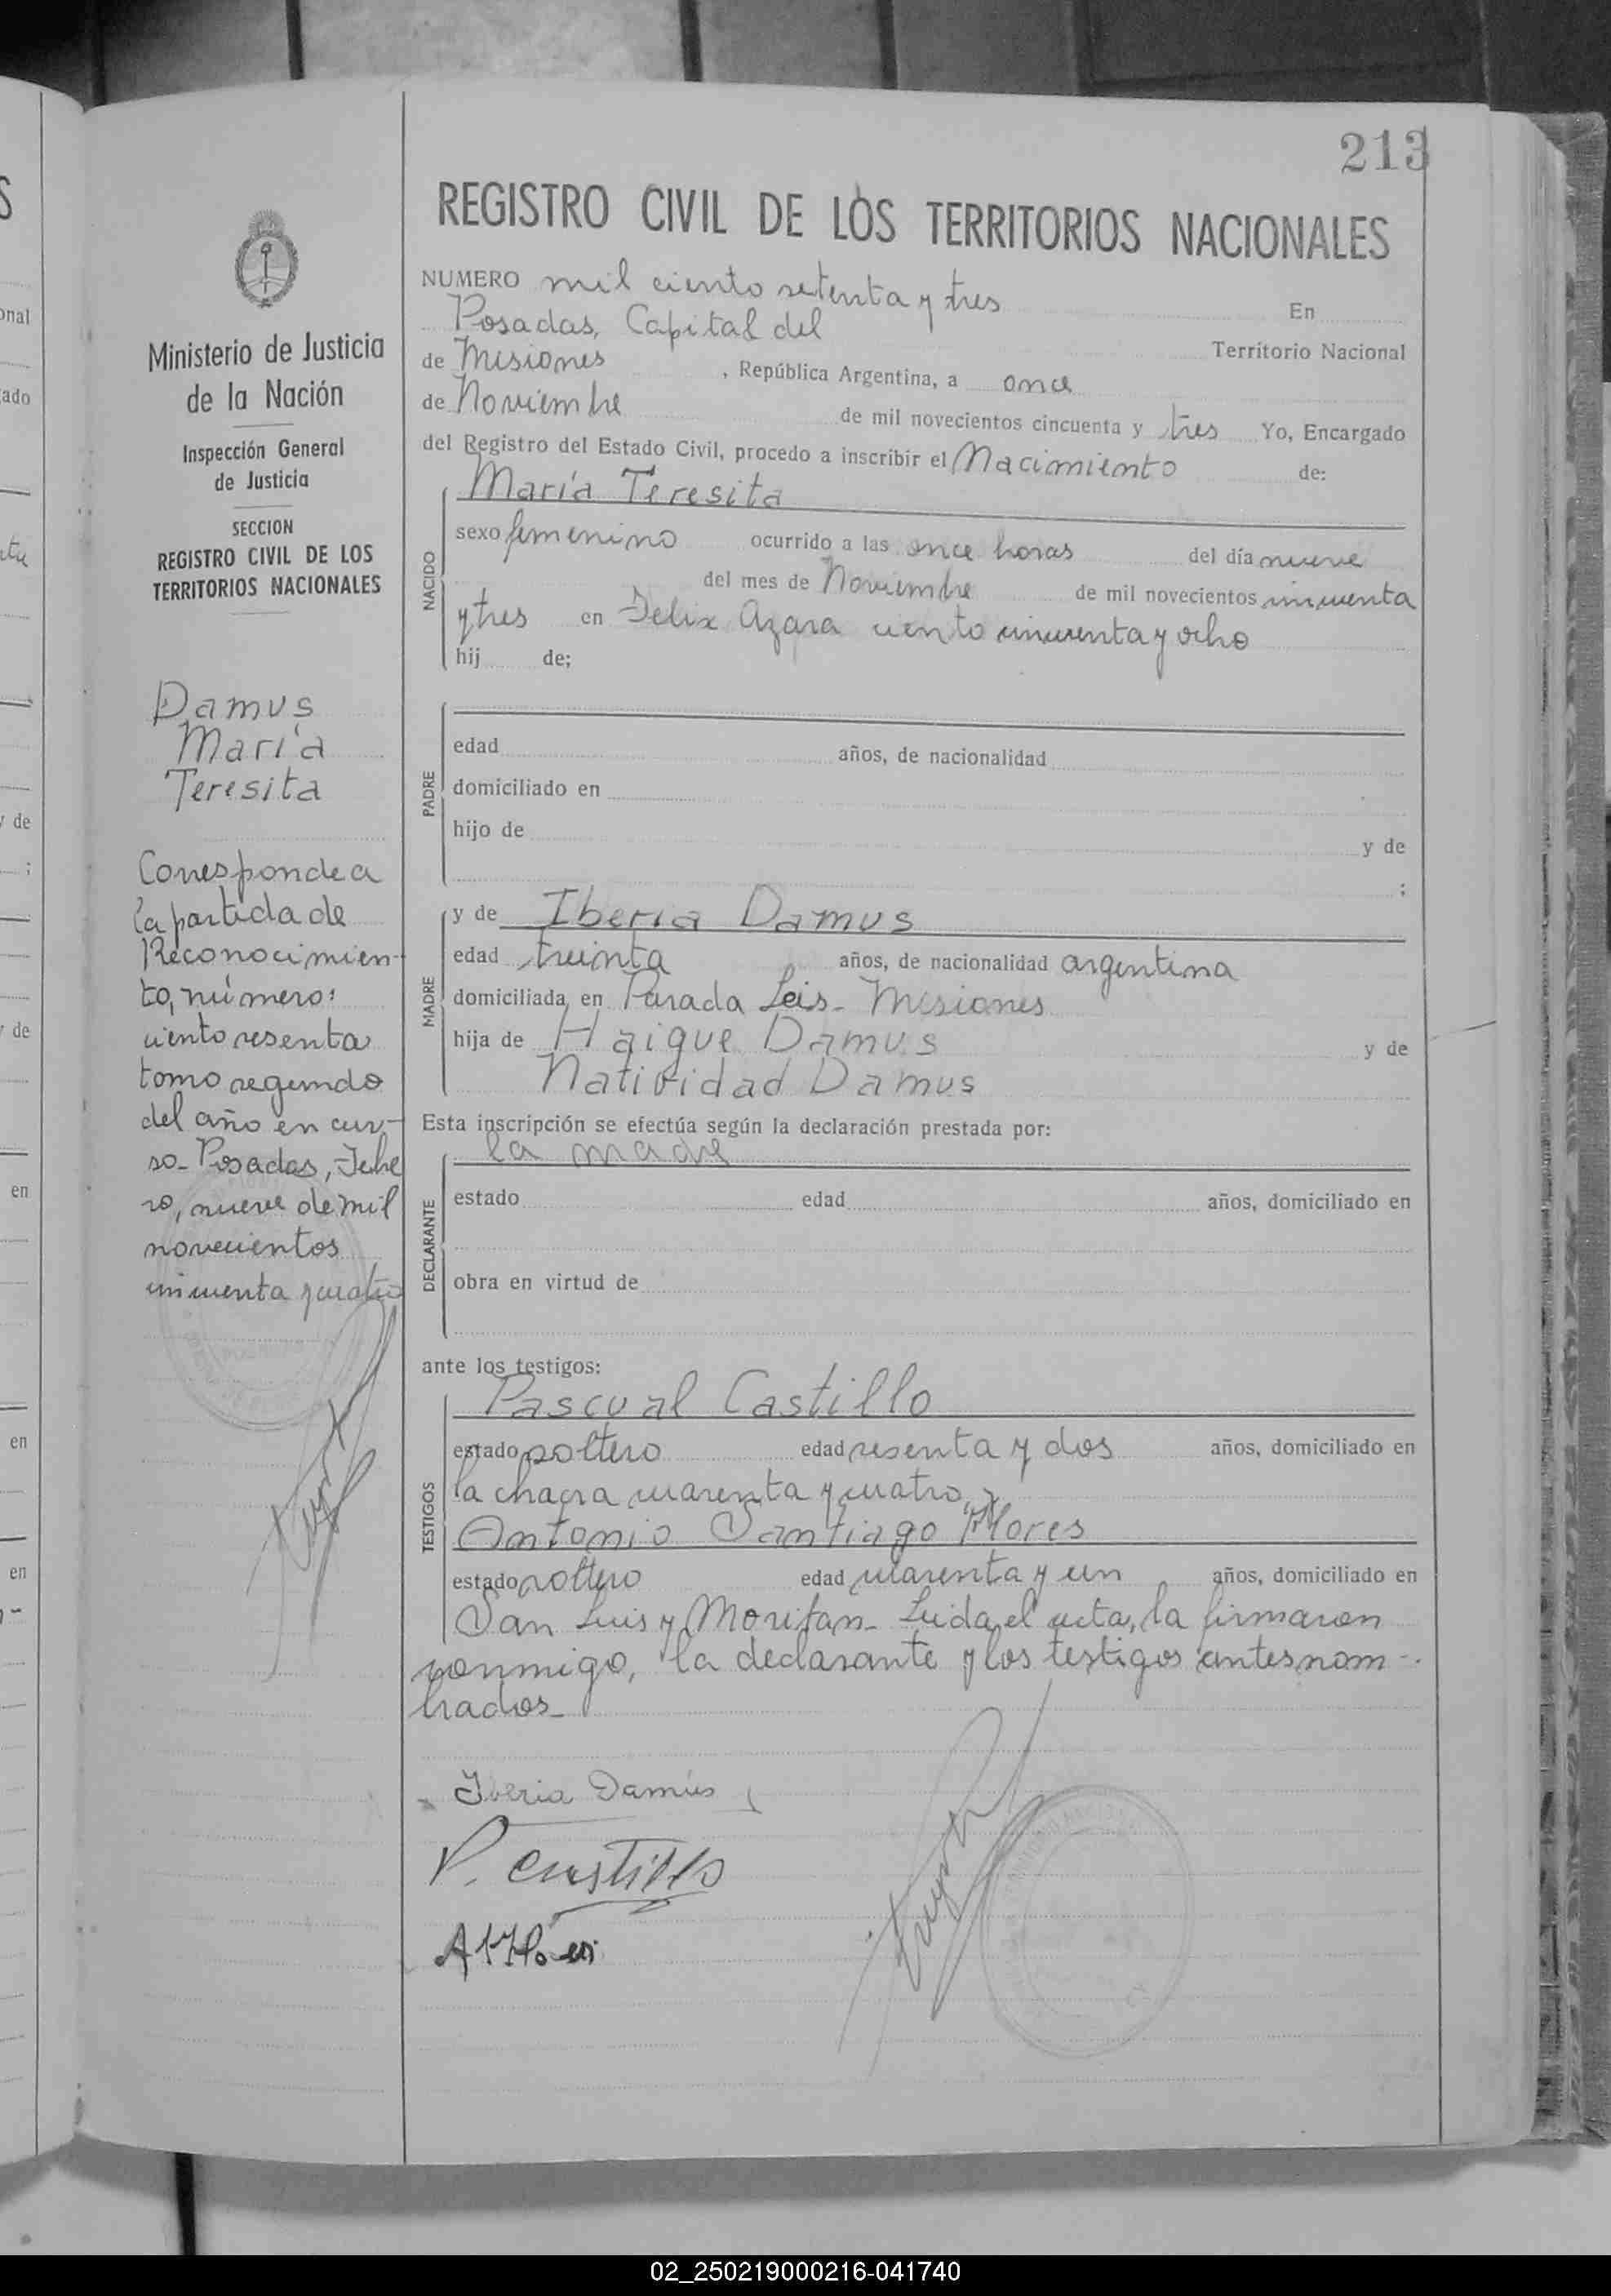 213
REGISTRO CIVIL DE LOS TERRITORIOS NACIONALES
NUMERO mil ciento setenta y tres En
Posadas, Capital del Territorio Nacional
de Misiones, República Argentina, a once
de Noviembre de mil novecientos cincuenta y tres Yo, Encargado
del Registro del Estado Civil, procedo a inscribir el Nacimiento de:
NACIDO
María Teresita
sexo femenino ocurrido a las once horas del día nueve
del mes de Noviembre de mil novecientos cincuenta
y tres en Felix Azara ciento cincuenta y ocho
hij de;
PADRE
edad años, de nacionalidad
domiciliado en
hijo de y de
;
MADRE
y de Iberia Damus
edad treinta años, de nacionalidad argentina
domiciliada en Parada Leis - Misiones
hija de Haique Damus y de
Natividad Damus
Esta inscripción se efectúa según la declaración prestada por:
DECLARANTE
la madre
estado edad años, domiciliado en
obra en virtud de
ante los testigos:
TESTIGOS
Pascual Castillo
estado soltero edad sesenta y dos años, domiciliado en
la chacra cuarenta y cuatro, y
Antonio Santiago Flores
estado soltero edad cuarenta y un años, domiciliado en
San Luis y Moritan - Leida el acta, la firmaron
conmigo, la declarante y los testigos antes nom-
brados -
Iberia Damús
P. Castillo
Ministerio de Justicia
de la Nación
Inspección General
de Justicia
SECCION
REGISTRO CIVIL DE LOS
TERRITORIOS NACIONALES
Damus
María
Teresita
Corresponde a
la partida de
Reconocimien-
to, número:
ciento sesenta
tomo segundo
del año en cur-
so - Posadas, Febre
ro, nueve de mil
novecientos
cincuenta y cuatro
onal
ado
y de
;
y de
en
en
en
02_250219000216-041740